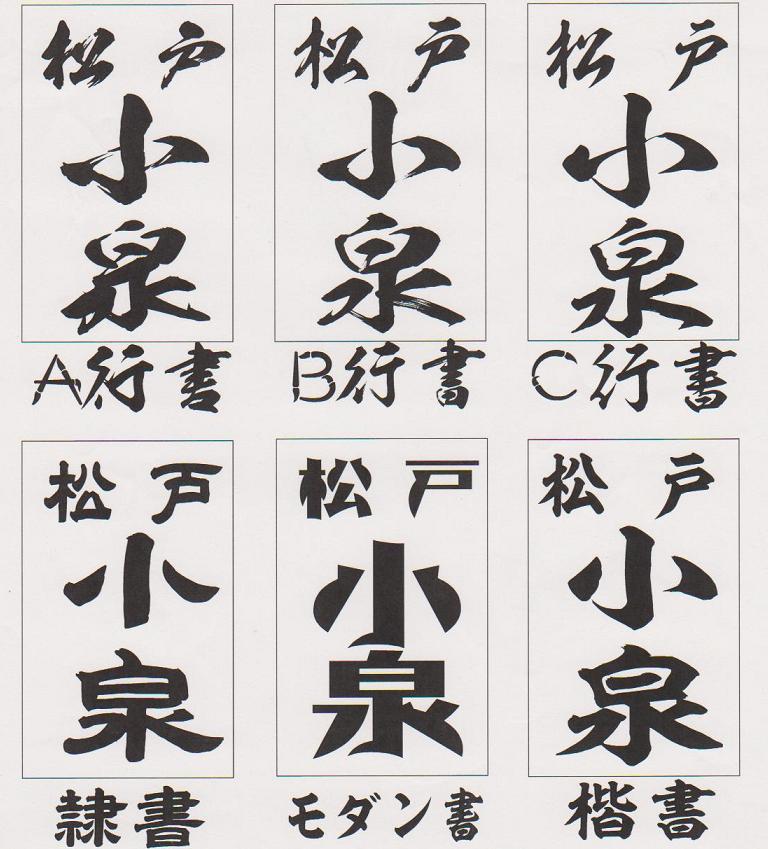 松戸
小
泉
A行書
松戸
小
泉
B行書
松戸
小
泉
C行書
松戸
小
泉
隷書
松戸
小
泉
モダン書
松戸
小
泉
楷書